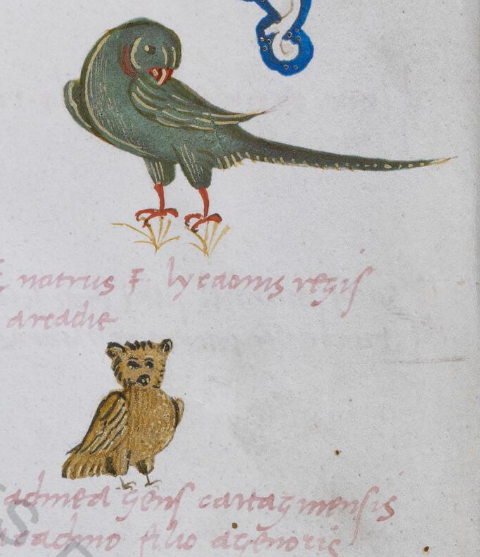 natrus F lycaonis regis
arcadie
admea gens cartaginensis
cadmo filio agenoris